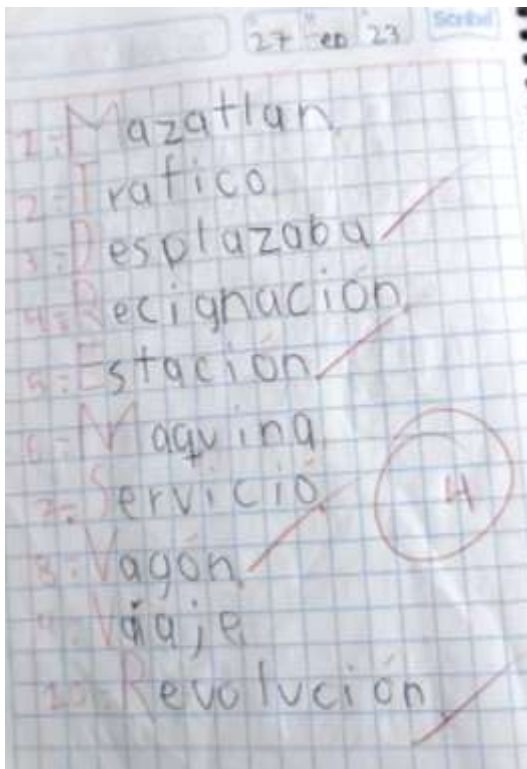 27 en 23 Scribe
1=Mazatlan.
2=Trafico.
3=Desplazaba
4=Recignación.
5=Estación.
6=Maquina.
7=Servició.
8=Vagón.
9=Viaje.
10=Revolución.
4